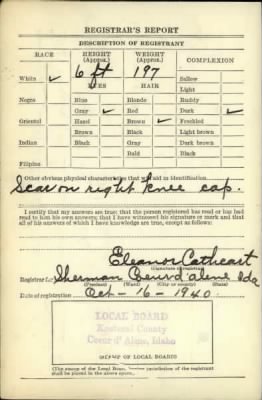 REGISTRAR'S REPORT
DESCRIPTION OF REGISTRANT
RACE HEIGHT (Approx.) WEIGHT (Approx.) COMPLEXION
6 ft 197
White ✓ EYES HAIR Sallow
Light
Negro Blue Blonde Ruddy
Gray ✓ Red Dark ✓
Oriental Hazel Brown ✓ Freckled
Brown Black Light brown
Indian Black Gray Dark brown
Bald Black
Filipino
Other obvious physical characteristics that will aid in identification
Scar on right knee cap.
I certify that my answers are true; that the person registered has read or has had
read to him his own answers; that I have witnessed his signature or mark and that
all of his answers of which I have knowledge are true, except as follows:
Eleanor Cathcart
(Signature of registrar)
Registrar for Sherman Coeur d'alene Ida
(Precinct) (Ward) (City or county) (State)
Date of registration Oct - 16 - 1940
LOCAL BOARD
Kootenai County
Coeur d' Alene, Idaho
(STAMP OF LOCAL BOARD)
(The stamp of the Local Board having jurisdiction of the registrant
shall be placed in the above space.)